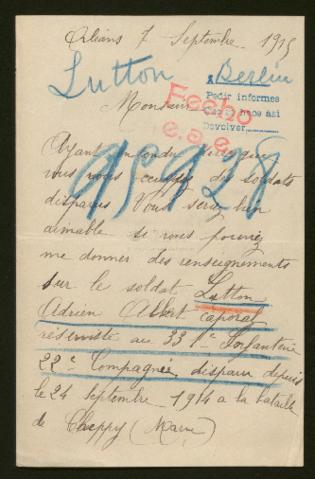 Orléans 7 Septembre 1915
Lutton
a Berlin
Pedir informes
Devolver
Fecho
e.a.e.
Monsieur
95928
Ayant entendu dire que
vous vous occupez des soldats
disparus Vous seriez bien
aimable si vous pouviez
me donner des renseignements
sur le soldat Lutton
Adrien Albert caporal
réserviste au 331e Infanterie
22e Compagnie disparu depuis
le 24 Septembre 1914 a la bataille
de Cheppy (Marne)